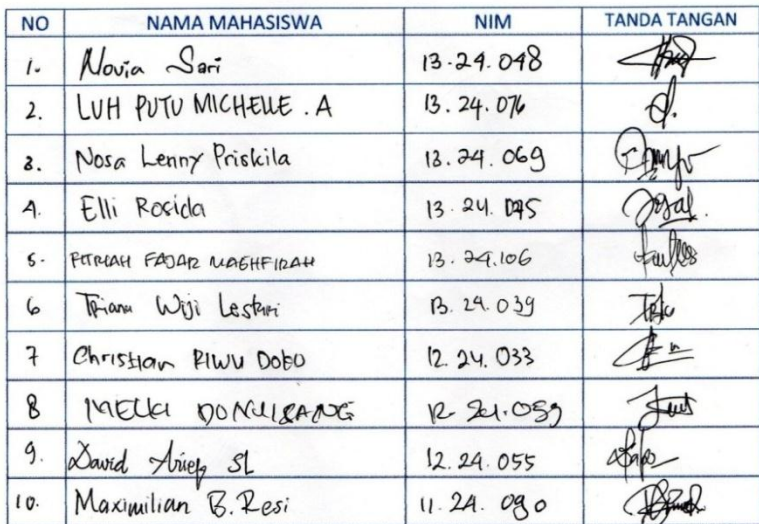 NO NAMA MAHASISWA NIM TANDA TANGAN
1. Novia Sari 13.24.048
2. LUH PUTU MICHELLE . A 13.24.076
3. Nosa Lenny Priskila 13.24.069
4. Elli Rosida 13.24.
5. FITRIAH FAJAR MAGHFIRAH 13.24.106
6 Triana Wiji Lestari 13.24.039
7 Christian RIWU DOBO 12.24.033
8 12.24.059
9. David Arief SL 12.24.055
10. Maximilian B. Resi 11.24.090